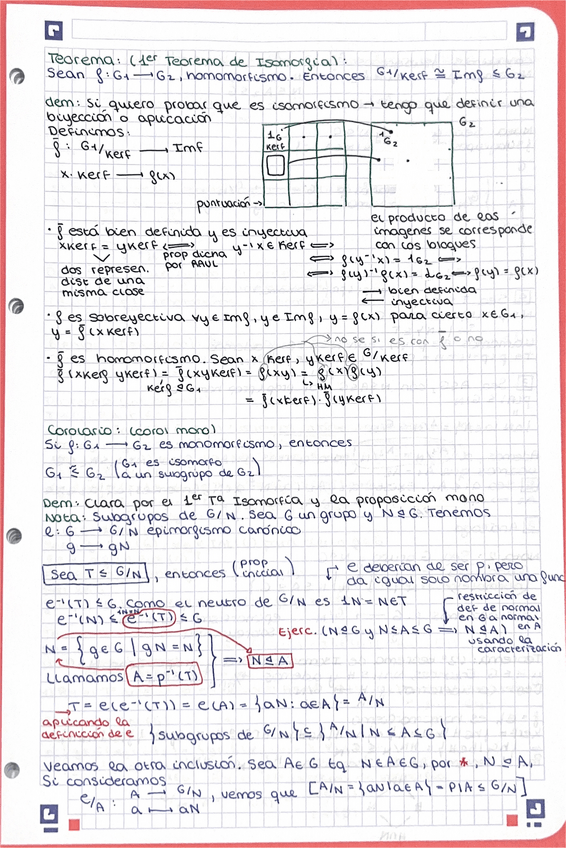 Teorema: (1er Teorema de Isomorfía):
Sean f: G1 → G2, homomorfismo. Entonces G1/Kerf ≅ Imf ≤ G2
dem: Si quiero probar que es isomorfismo → tengo que definir una
biyección o aplicación
Definimos:
f̄: G1/Kerf → Imf
x·Kerf → f(x)
1G
Kerf
1G2
G2
puntuación →
el producto de las
imagenes se corresponde
con los bloques
· f̄ está bien definida y es inyectiva
xKerf = yKerf ⟺ y⁻¹x ∈ Kerf ⟺
prop dicha
por RAUL
dos represen.
dist de una
misma clase
⟺ f(y⁻¹x) = 1G2 ⟺
⟺ f(y)⁻¹f(x) = 1G2 ⟺ f(y) = f(x)
→ bien definida
← inyectiva
· f es sobreyectiva ∀y ∈ Imf, y ∈ Imf, y = f(x) para cierto x ∈ G1,
y = f̄(xKerf)
→ no se si es con f̄ o no
· f̄ es homomorfismo. Sean xKerf, yKerf ∈ G/Kerf
f̄(xKerf yKerf) = f̄(xyKerf) = f(xy) = f(x)f(y)
Kerf ⊴ G1
↳ HM
= f̄(xKerf)·f̄(yKerf)
Corolario: (corol mono)
Si f: G1 → G2 es monomorfismo, entonces
G1 ≲ G2 (G1 es isomorfo
a un subgrupo de G2)
Dem: Clara por el 1er Ta Isomorfía y la proposición mono
Nota: Subgrupos de G/N. Sea G un grupo y N ⊴ G. Tenemos
e: G → G/N epimorfismo canónico
g → gN
Sea T ≤ G/N, entonces (prop
inicial)
e deberían de ser p, pero
da igual solo nombra una func
e⁻¹(T) ≤ G. Como el neutro de G/N es 1N = N ∈ T
e⁻¹(N) ≤ e⁻¹(T) ≤ G
restricción de
def de normal
en G a normal
en A
usando la
caracterización
Ejerc. (N ⊴ G y N ≤ A ≤ G ⟹ N ⊴ A)
N = {g ∈ G | gN = N}
⟹ N ⊴ A
Llamamos A = p⁻¹(T)
T = e(e⁻¹(T)) = e(A) = {aN: a ∈ A} = A/N
aplicando la
definición de e
{subgrupos de G/N} ⊆ {A/N | N ≤ A ≤ G}
Veamos la otra inclusión. Sea A ∈ G tq N ∈ A ∈ G, por *, N ⊴ A,
Si consideramos
e/A: A → G/N, vemos que [A/N = {aN | a ∈ A} = P/A ≤ G/N]
a ↦ aN